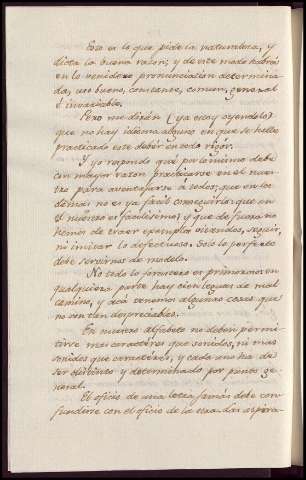 Esto es lo que pide la naturaleza, y
dicta la buena razon; y de este modo habrá
en lo venidero pronunciacion determina-
da, uso bueno, constante, comun, general
é invariable.
Pero me dirán (ya estoy oyendolo)
que no hay idioma alguno en que se halle
practicado este deber en todo rigor.
Y yo respondo que por lo mismo debe
con mayor razon practicarse en el nues-
tro para aventajarse á todos; que en los
demas no es ya facil conseguirlo: que en
el nuestro es facilisimo; y que de fuera no
hemos de traer exemplos viciosos, seguir,
ni imitar lo defectuoso. Solo lo perfecto
debe servirnos de modelo.
No todo lo forastero es primoroso: en
qualquiera parte hay cien leguas de mal
camino, y acá tenemos algunas cosas que
no son tan despreciables.
En nuestro alfabeto no deben permi-
tirse mas caractéres que sonidos, ni mas
sonidos que caractéres, y cada uno ha de
ser distinto y determinado por punto ge-
neral.
El oficio de una letra jamás debe con-
fundirse con el oficio de la otra. Las aspera-